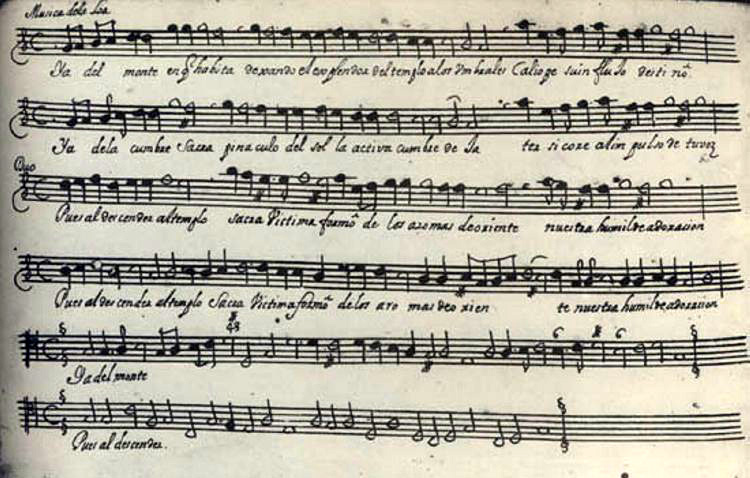 Musica dela Loa
Ya del monte en q̃ habita dexando el explendor del templo a los Vmbrales Caliope su influjo destinõ
Ya dela cumbre Sacra pinaculo del sol la activa cumbre de
tersicore al inpulso de tu voz
Duo
Pues al descender al templo sacra Victima formõ de los aromas de oriente nuestra humilde adoracion
Pues al descender al templo Sacra Victima formõ de los aromas de oriente nuestra humilde adoracion
43
6 6
Ya del monte
Pues al descender.